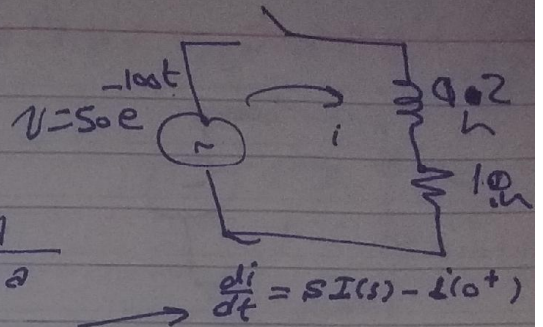 v=50e^-100t
~
i
0.2
h
10
di/dt = SI(s) - i(0+)